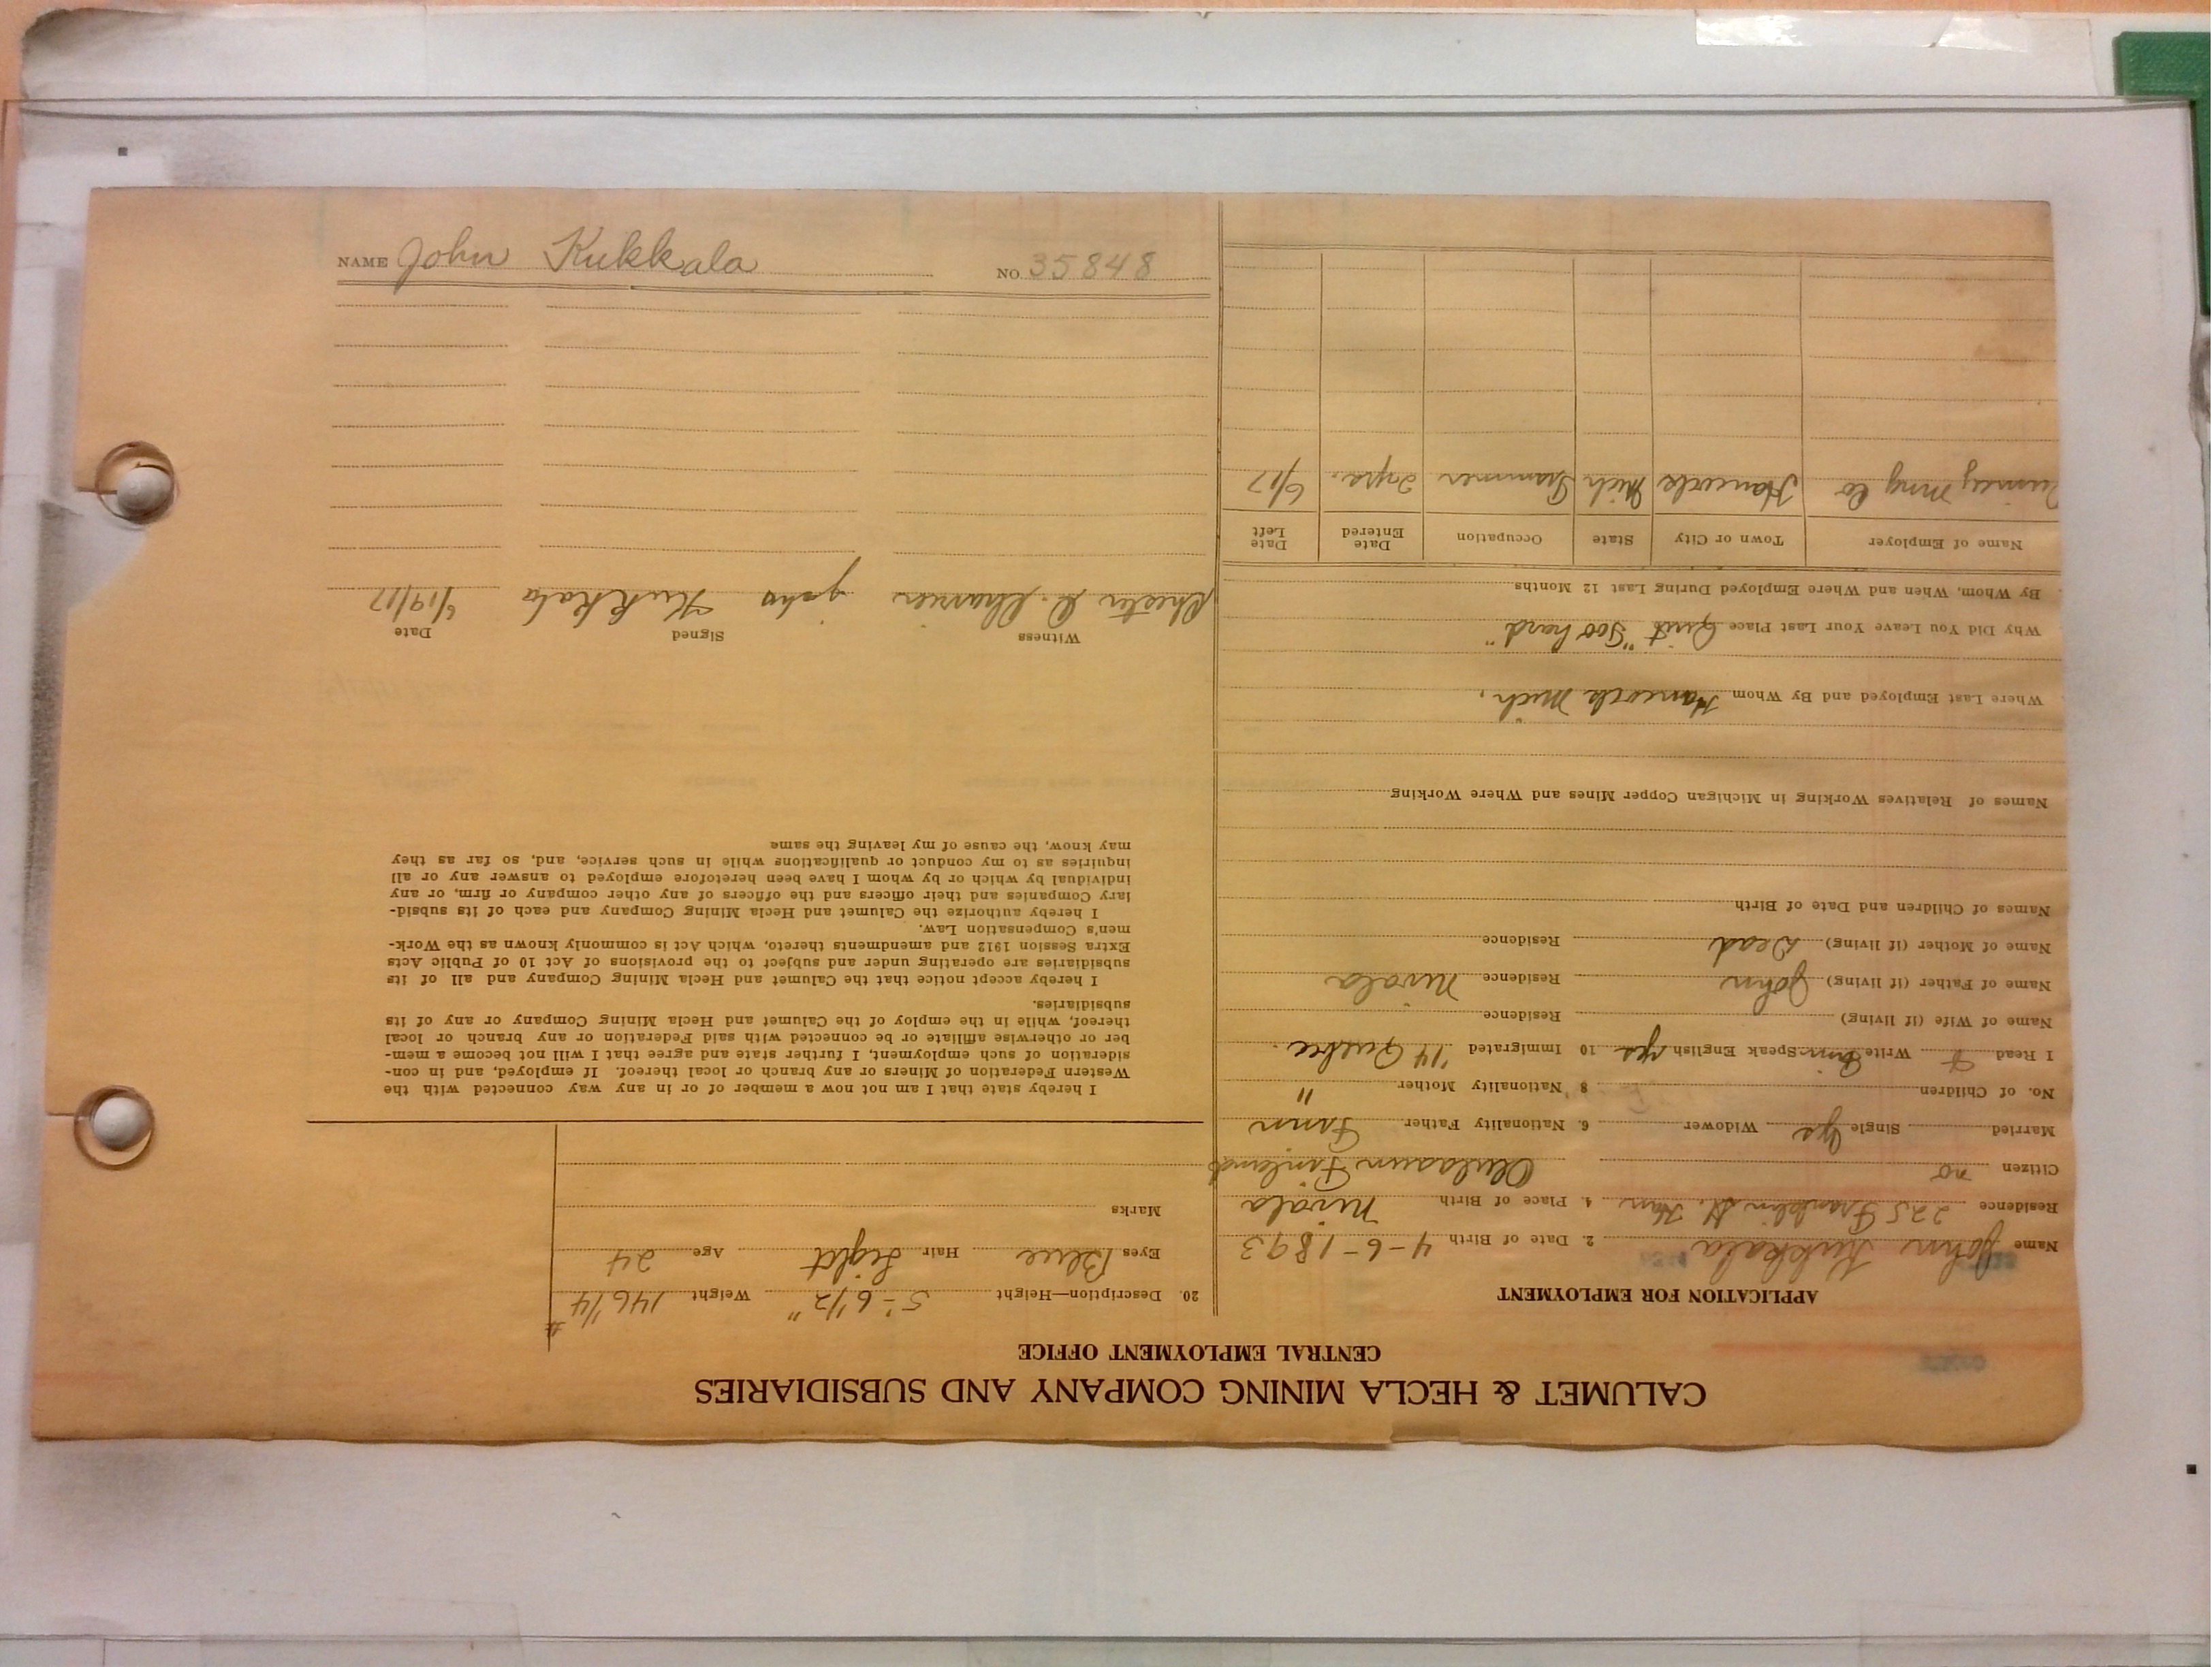 NAME John Kukkala NO. 35848
CALUMET & HECLA MINING COMPANY AND SUBSIDIARIES
CENTRAL EMPLOYMENT OFFICE
APPLICATION FOR EMPLOYMENT
Name John Kukkala 2. Date of Birth 4-6-1893
Residence 225 Franklin St. Han 4. Place of Birth Nivala
Citizen no Finland
Married Single yes Widower 6. Nationality Father Finn
No. of Children 8 Nationality Mother "
I Read Write Finn. Speak English yes 10 Immigrated '14 Quebec.
Name of Wife (if living) Residence
Name of Father (if living) John Residence Nivala
Name of Mother (if living) Dead Residence
Names of Children and Date of Birth
Names of Relatives Working in Michigan Copper Mines and Where Working
Where Last Employed and By Whom Hancock Mich.
Why Did You Leave Your Last Place Quit "Too hard"
By Whom, When and Where Employed During Last 12 Months
Name of Employer Town or City State Occupation Date Entered Date Left
Quincy Mng Co Hancock Mich Trammer 2 yrs. 6/17
20. Description—Height 5'-6 1/2" Weight 146 1/4 #
Eyes Blue Hair Light Age 24
Marks
I hereby state that I am not now a member of or in any way connected with the
Western Federation of Miners or any branch or local thereof. If employed, and in con-
sideration of such employment, I further state and agree that I will not become a mem-
ber or otherwise affiliate or be connected with said Federation or any branch or local
thereof, while in the employ of the Calumet and Hecla Mining Company or any of its
subsidiaries.
I hereby accept notice that the Calumet and Hecla Mining Company and all of its
subsidiaries are operating under and subject to the provisions of Act 10 of Public Acts
Extra Session 1912 and amendments thereto, which Act is commonly known as the Work-
men's Compensation Law.
I hereby authorize the Calumet and Hecla Mining Company and each of its subsid-
iary Companies and their officers and the officers of any other company or firm, or any
individual by which or by whom I have been heretofore employed to answer any or all
inquiries as to my conduct or qualifications while in such service, and, so far as they
may know, the cause of my leaving the same
Witness Signed Date
Chester John Kukkala 6/19/17